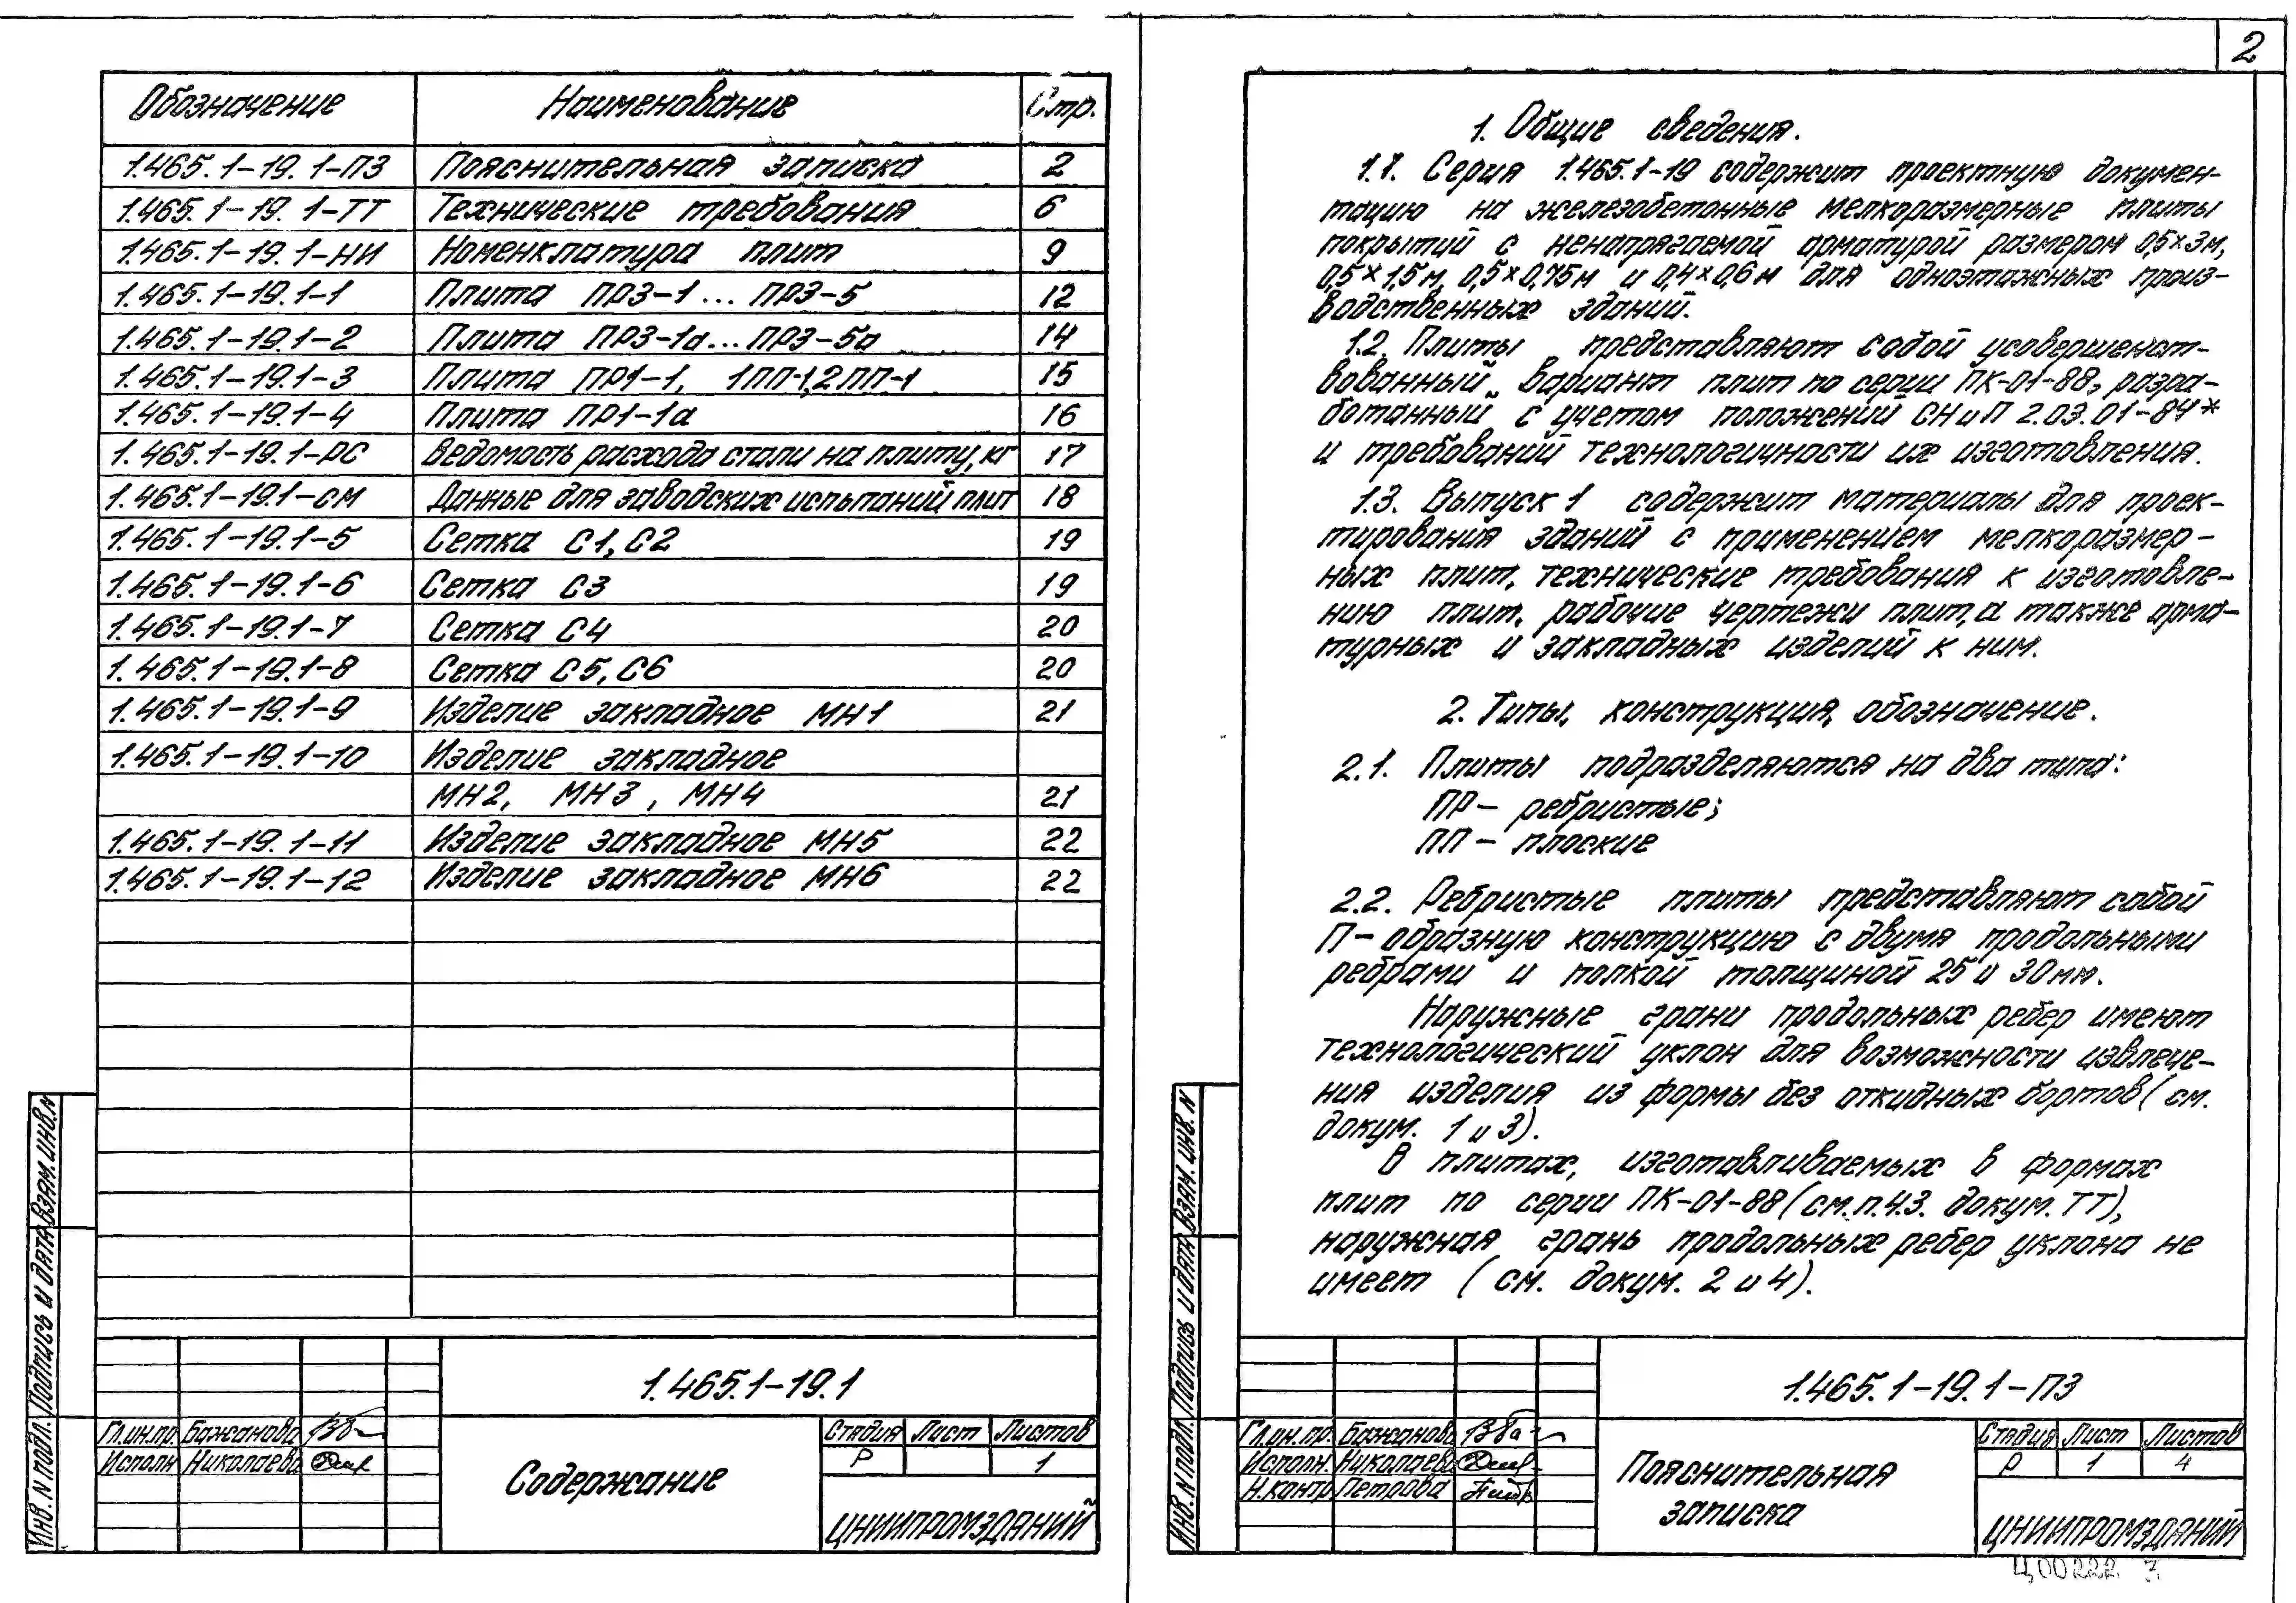 Обозначение Наименование Стр.
1.465.1-19.1-ПЗ Пояснительная записка 2
1.465.1-19.1-ТТ Технические требования 6
1.465.1-19.1-НИ Номенклатура плит 9
1.465.1-19.1-1 Плита ПР3-1...ПР3-5 12
1.465.1-19.1-2 Плита ПР3-1а...ПР3-5а 14
1.465.1-19.1-3 Плита ПР1-1, 1ПП-1,2ПП-1 15
1.465.1-19.1-4 Плита ПР1-1а 16
1.465.1-19.1-РС Ведомость расхода стали на плиту, кг 17
1.465.1-19.1-СМ Данные для заводских испытаний плит 18
1.465.1-19.1-5 Сетка С1, С2 19
1.465.1-19.1-6 Сетка С3 19
1.465.1-19.1-7 Сетка С4 20
1.465.1-19.1-8 Сетка С5, С6 20
1.465.1-19.1-9 Изделие закладное МН1 21
1.465.1-19.1-10 Изделие закладное
МН2, МН3, МН4 21
1.465.1-19.1-11 Изделие закладное МН5 22
1.465.1-19.1-12 Изделие закладное МН6 22
Инв. N подл. Подпись и дата Взам. инв. N
1.465.1-19.1
Гл.ин.пр. Бажанова
Исполн Николаева
Содержание
Стадия Лист Листов
Р 1
ЦНИИПРОМЗДАНИЙ
2
1. Общие сведения.
1.1. Серия 1.465.1-19 содержит проектную докумен-
тацию на железобетонные мелкоразмерные плиты
покрытий с ненапрягаемой арматурой размером 0,5×3м,
0,5×1,5м, 0,5×0,75м и 0,4×0,6м для одноэтажных произ-
водственных зданий.
1.2. Плиты представляют собой усовершенст-
вованный вариант плит по серии ПК-01-88, разра-
ботанный с учетом положений СНиП 2.03.01-84*
и требований технологичности их изготовления.
1.3. Выпуск 1 содержит материалы для проек-
тирования зданий с применением мелкоразмер-
ных плит, технические требования к изготовле-
нию плит, рабочие чертежи плит, а также арма-
турных и закладных изделий к ним.
2. Типы, конструкция, обозначение.
2.1. Плиты подразделяются на два типа:
ПР- ребристые;
ПП - плоские
2.2. Ребристые плиты представляют собой
П-образную конструкцию с двумя продольными
ребрами и полкой толщиной 25 и 30мм.
Наружные грани продольных ребер имеют
технологический уклон для возможности извлече-
ния изделия из формы без откидных бортов (см.
докум. 1 и 3).
В плитах, изготавливаемых в формах
плит по серии ПК-01-88 (см.п.4.3. докум. ТТ),
наружная грань продольных ребер уклона не
имеет (см. докум. 2 и 4).
Инв. N подл. Подпись и дата Взам. инв. N
1.465.1-19.1-ПЗ
Гл.ин.пр. Бажанова
Исполн. Николаева
Н.контр Петрова
Пояснительная
записка
Стадия Лист Листов
Р 1 4
ЦНИИПРОМЗДАНИЙ
Ц00222 3